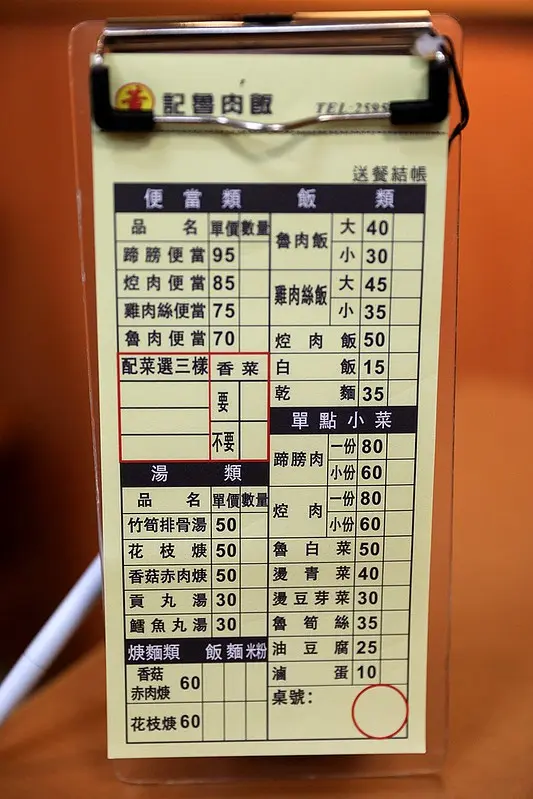 黃記魯肉飯
TEL:2595
送餐結帳
便當類
品名 單價 數量
蹄膀便當 95
焢肉便當 85
雞肉絲便當 75
魯肉便當 70
配菜選三樣 香菜
要
不要
湯類
品名 單價 數量
竹筍排骨湯 50
花枝焿 50
香菇赤肉焿 50
貢丸湯 30
鱈魚丸湯 30
焿麵類 飯 麵 米粉
香菇
赤肉焿 60
花枝焿 60
飯類
魯肉飯 大 40
小 30
雞肉絲飯 大 45
小 35
焢肉飯 50
白飯 15
乾麵 35
單點小菜
蹄膀肉 一份 80
小份 60
焢肉 一份 80
小份 60
魯白菜 50
燙青菜 40
燙豆芽菜 30
魯筍絲 35
油豆腐 25
滷蛋 10
桌號: